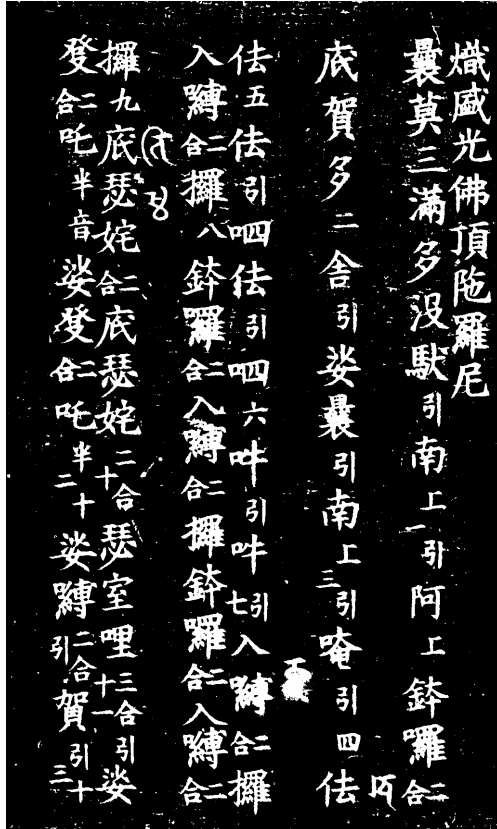 熾盛光佛頂陁羅尼
曩莫三滿多沒馱引南上一引阿上鉢囉二合
底賀多二舍引娑曩引南上三引唵引四佉
佉五佉引呬佉引呬六吽引吽七引入嚩二合攞
入嚩二合攞八鉢囉二合入嚩二合攞鉢囉二合入嚩二合
攞九底瑟姹二合底瑟姹二合十瑟室哩三合十一引娑
發二合吒半音娑發二合吒半音十二娑嚩二合引賀引十三